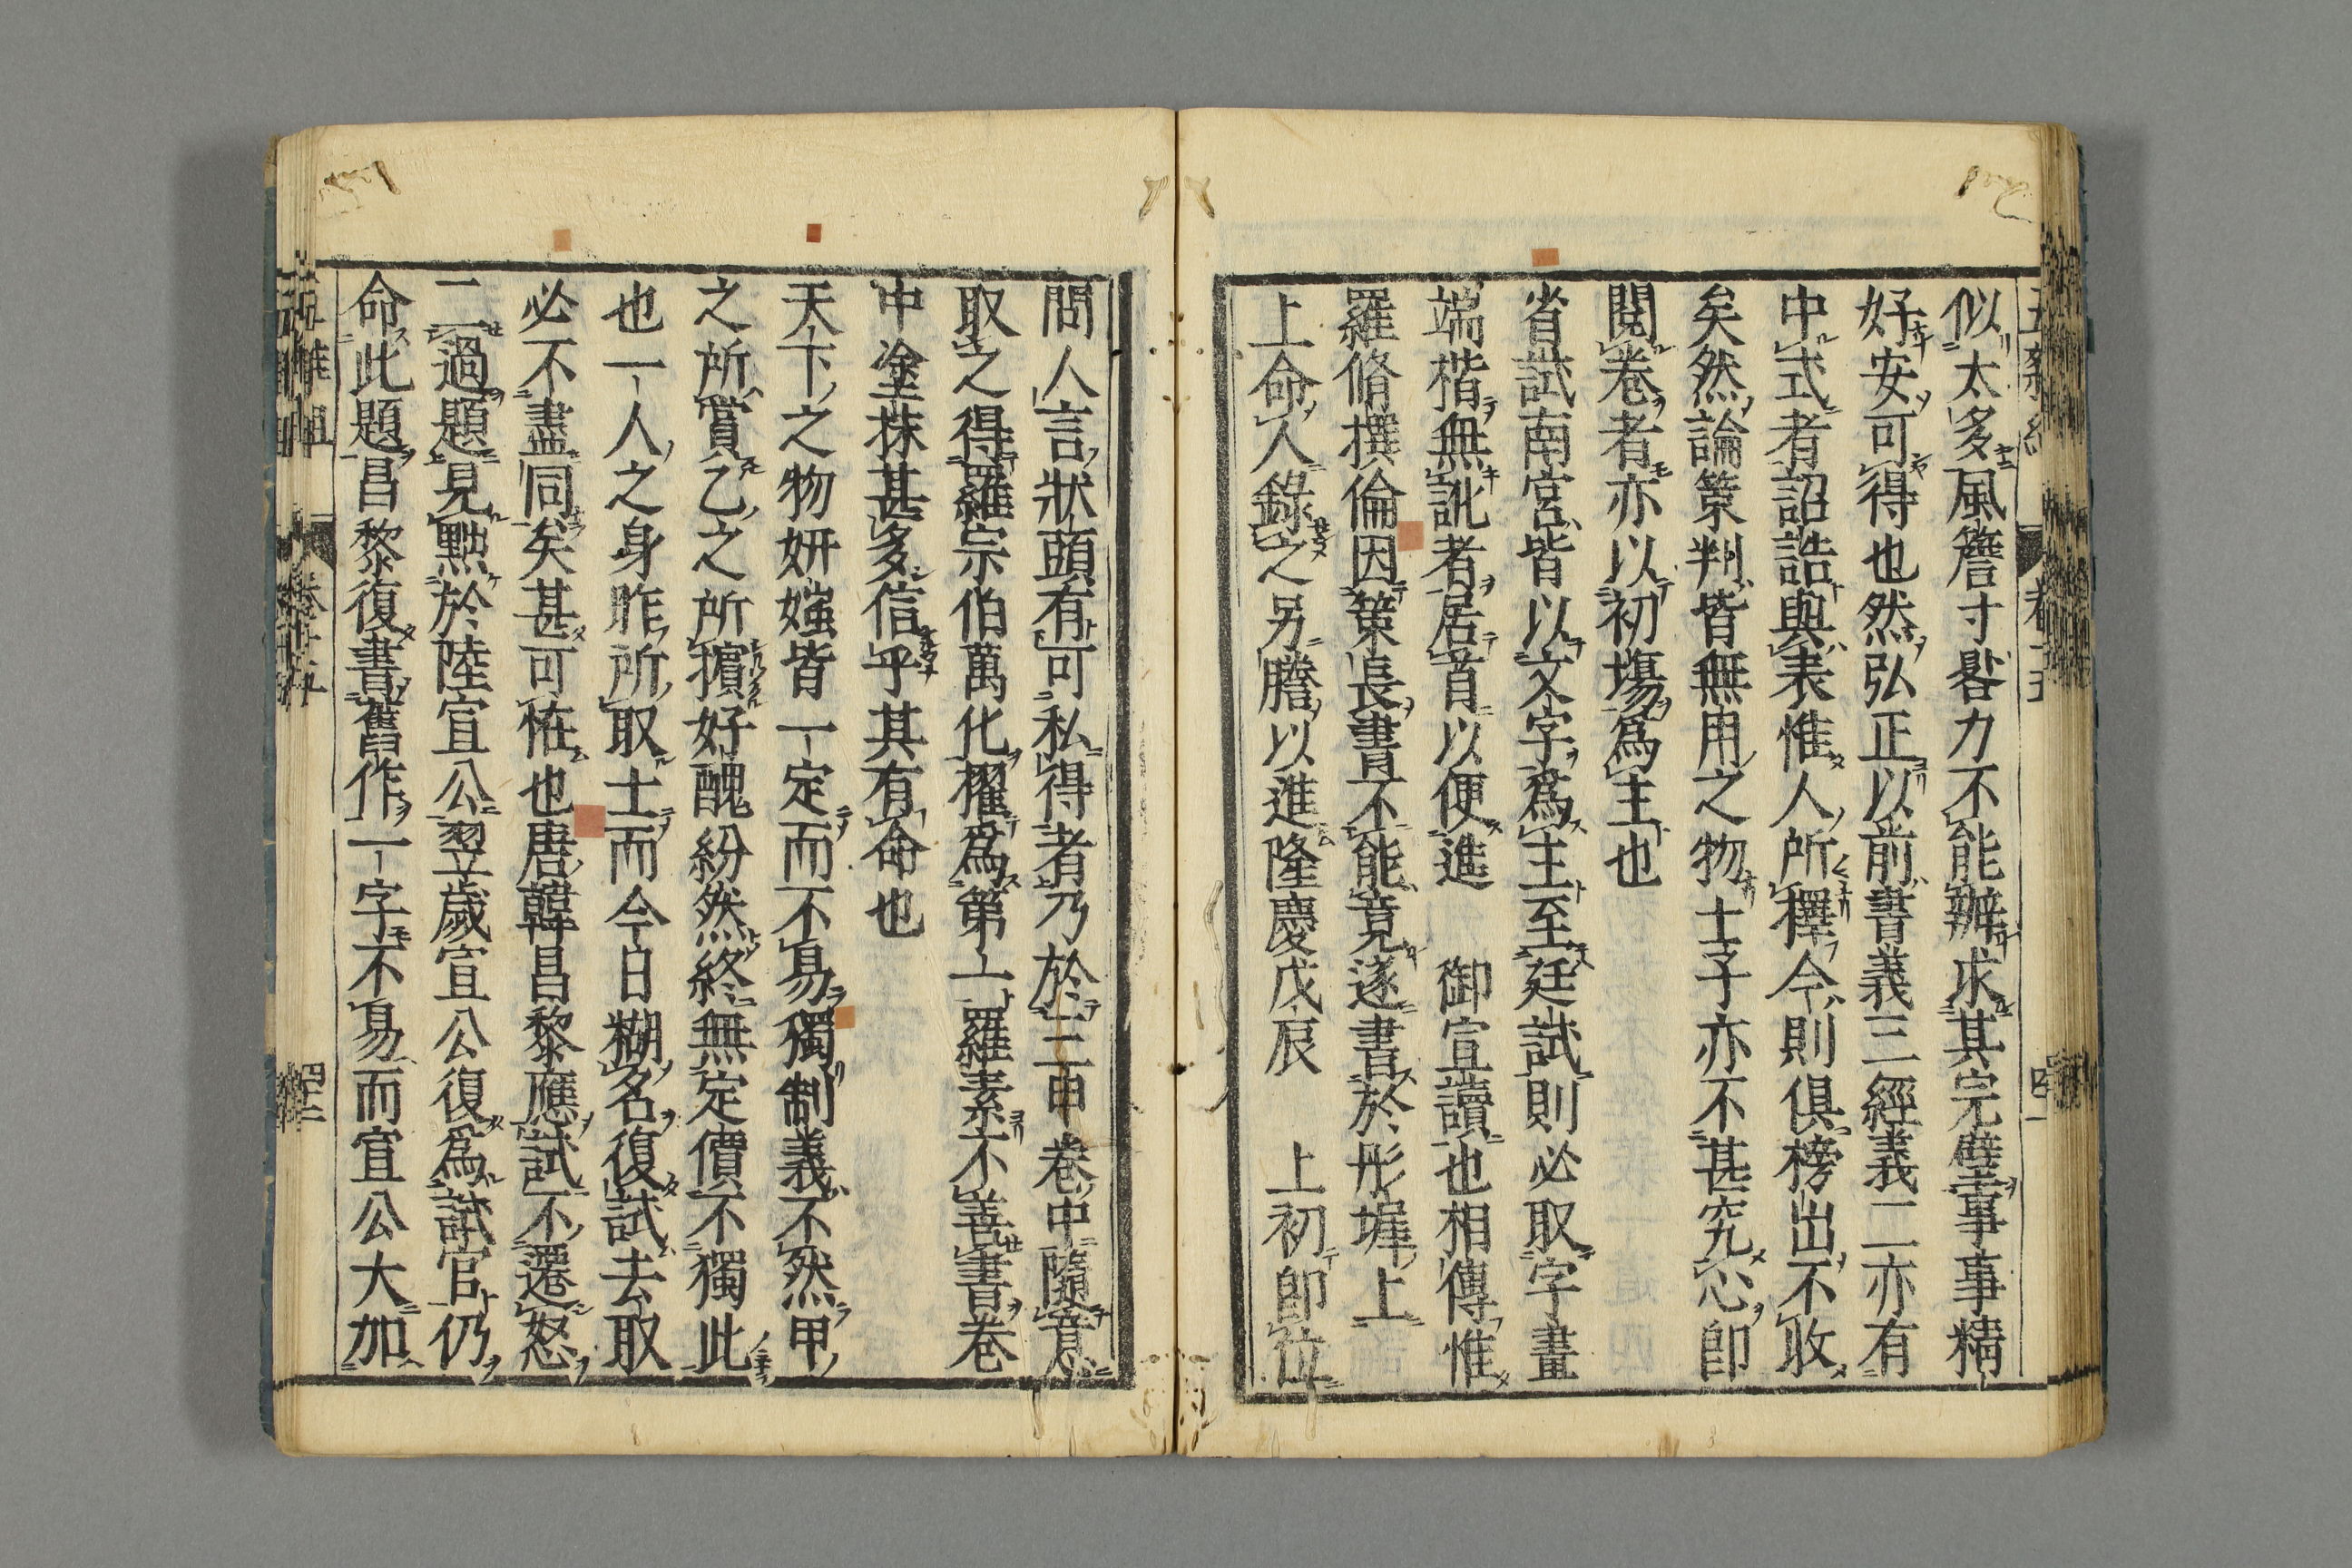 似太多風簷寸晷力不能辦求其完璧事事精
好安可得也然弘正以前書義三經義二亦有
中式者詔誥與表惟人所擇今則俱榜出不收
矣然論策判皆無用之物士子亦不甚究心卽
閱卷者亦以初場爲主也
省試南宮皆以文字爲主至廷試則必取字畫
端楷無訛者居首以便進 御宣讀也相傳惟
羅脩撰倫因策長書不能竟遂書於彤墀上
上命人錄之另謄以進隆慶戊辰 上初卽位
問人言狀頭有可私得者乃於三甲卷中隨意
取之得羅宗伯萬化擢爲第一羅素不善書卷
中塗抹甚多信乎其有命也
天下之物妍媸皆一定而不易獨制義不然甲
之所賞乙之所擯好醜紛然終無定價不獨此
也一人之身昨所取士而今日糊名復試去取
必不盡同矣甚可恠也唐韓昌黎應試不遷怒
二過題見黜於陸宣公翌歲宣公復爲試官仍
命此題昌黎復書舊作一字不易而宣公大加
五雜組 卷十五 四十二